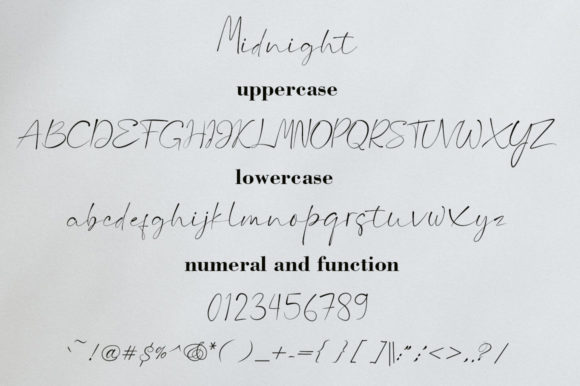 Midnight
uppercase
ABCDEFGHIJKLMNOPQRSTUVWXYZ
lowercase
abcdefghijklmnopqrstuvwxyz
numeral and function
0123456789
`~!@#$%^&*()_+-={}[]\|:";'<>,.?/